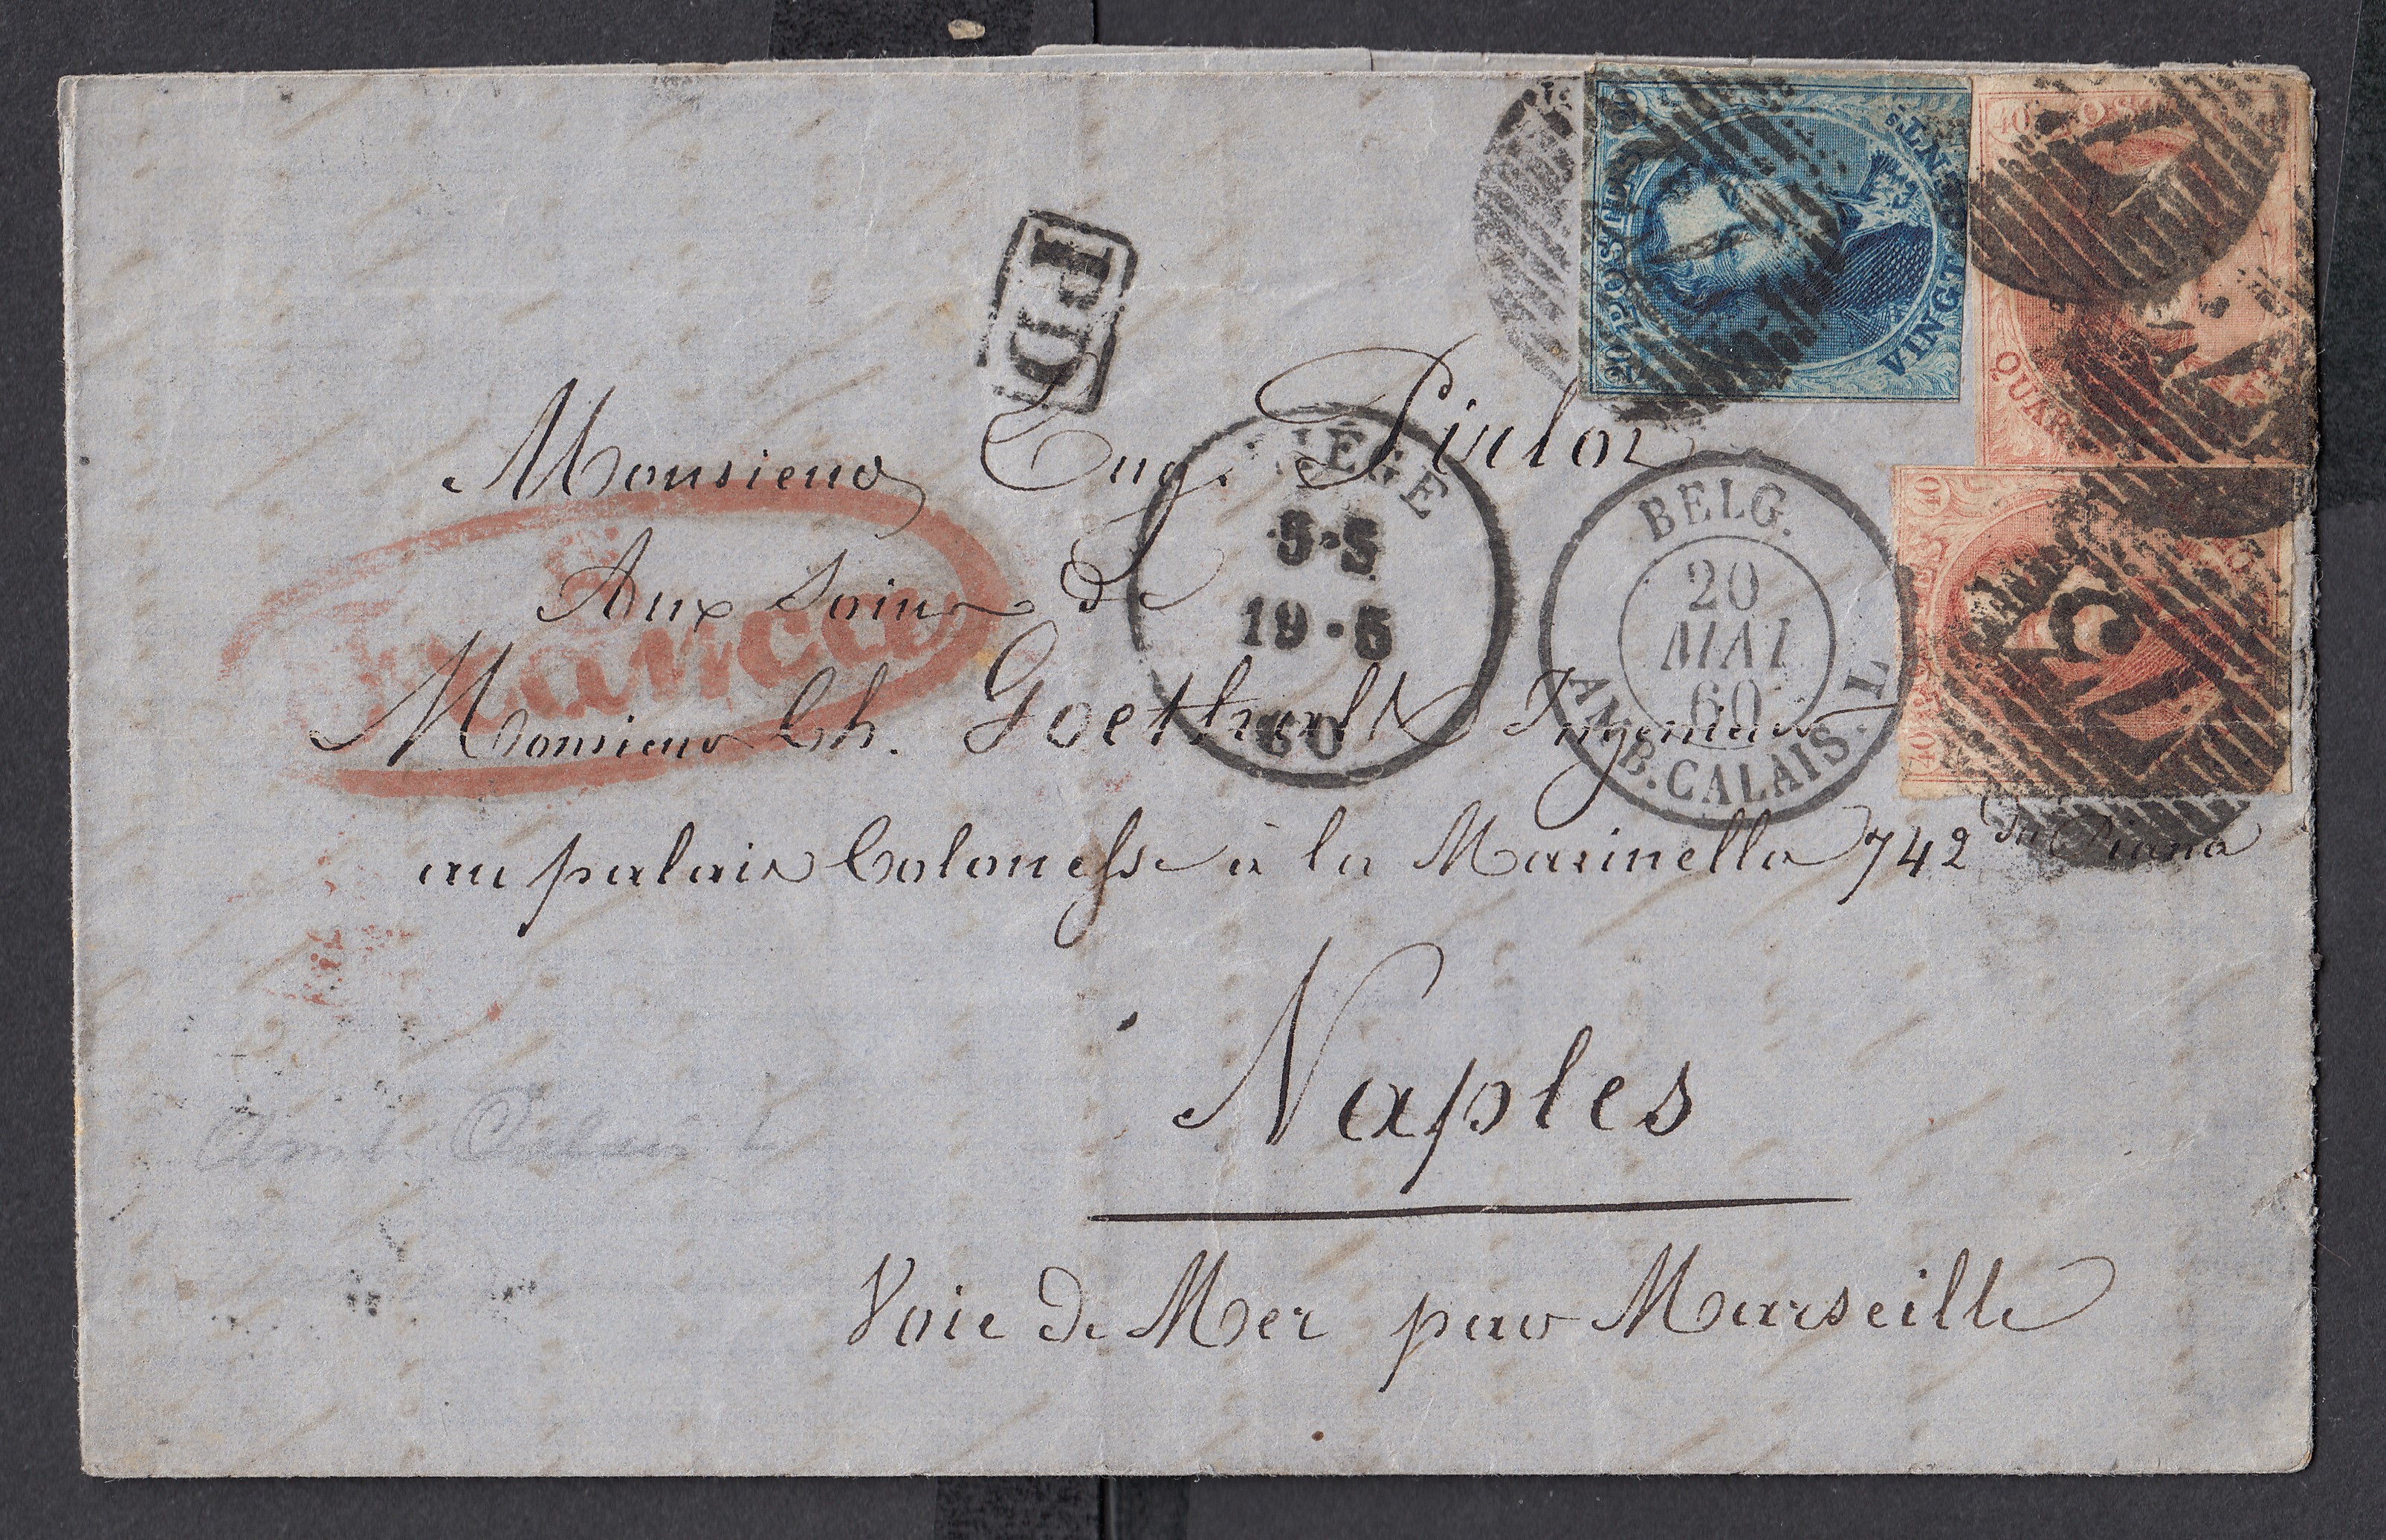 20 POSTES 20
VINGT CENTS
40
QUAR
40
40
PD
LIÉGE
5-S
19-5
60
BELG.
20
MAI
60
AMB.CALAIS.L
Franco
Monsieur Eug. Pirlot
Aux Soins de
Monsieur Ch. Goethals Ingénieur
au palais Colonesse à la Marinella 742 Piano
Naples
Voie de Mer par Marseille
Amb. Calais L